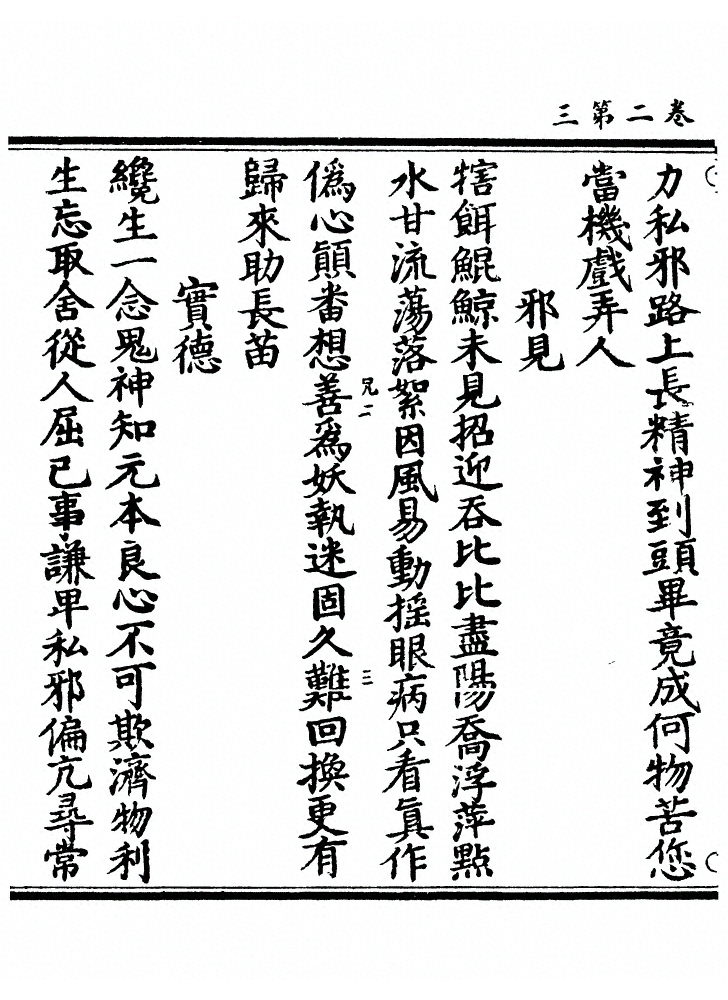 卷二第三
力私邪路上長精神到頭畢竟成何物苦您
當機戲弄人
邪見
犗餌鯤鯨未見招迎吞比比盡陽喬浮萍點
水甘流蕩落絮因風易動搖眼病只看眞作
僞心顚畨想善爲妖執迷固久難回換更有
兄二
三
歸來助長苗
實德
纔生一念鬼神知元本良心不可欺濟物利
生忘取舍從人屈己事謙卑私邪偏亢尋常